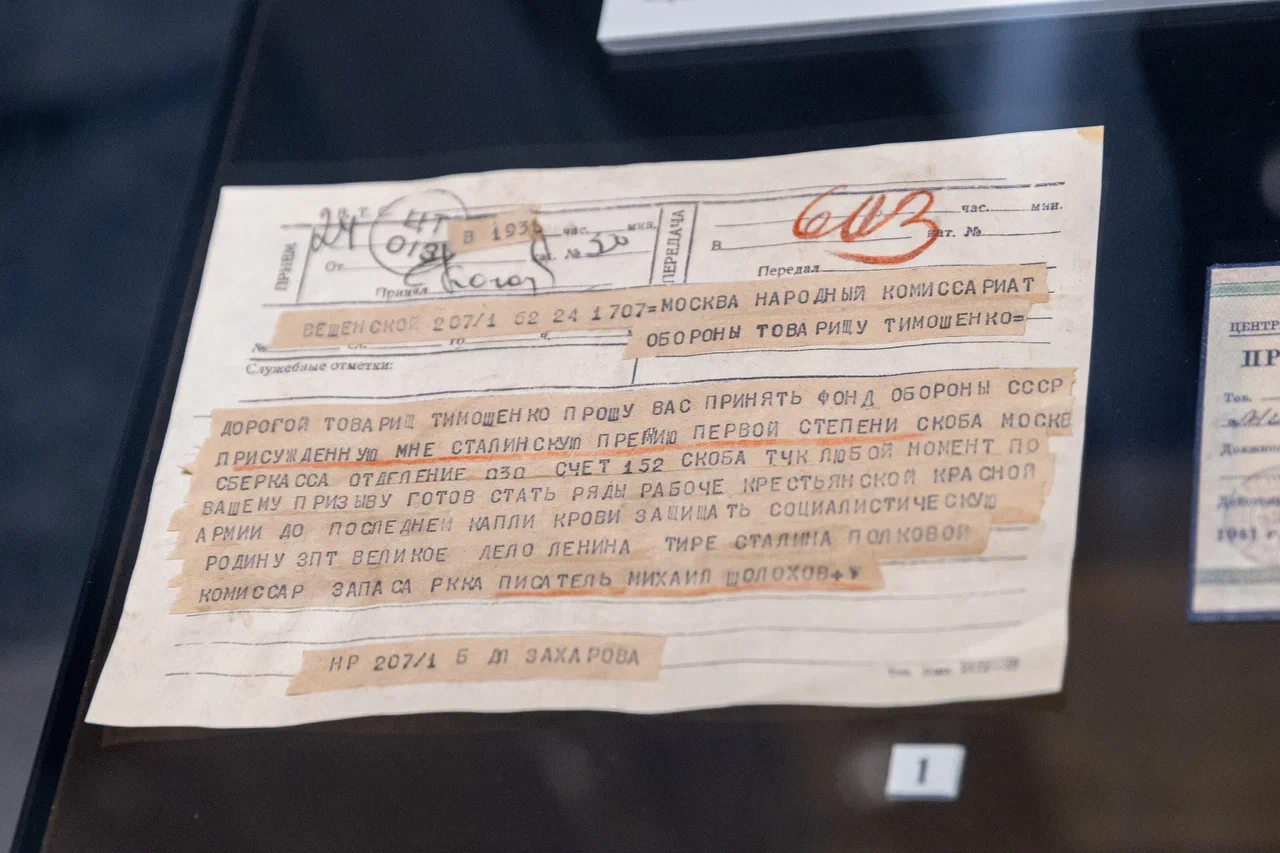 ПРИЕМ
24
ЦТ
В 193
час. мин.
№ 30
От
Принял
ПЕРЕДАЧА
603
час. мин.
В
Передал
ВЕШЕНСКОЙ 207/1 62 24 1707=МОСКВА НАРОДНЫЙ КОМИССАРИАТ
ОБОРОНЫ ТОВАРИЩУ ТИМОШЕНКО=
№
Служебные отметки:
ДОРОГОЙ ТОВАРИЩ ТИМОШЕНКО ПРОШУ ВАС ПРИНЯТЬ ФОНД ОБОРОНЫ СССР
ПРИСУЖДЕННУЮ МНЕ СТАЛИНСКУЮ ПРЕМИЮ ПЕРВОЙ СТЕПЕНИ СКОБА МОСКВ
СБЕРКАССА ОТДЕЛЕНИЕ 030 СЧЕТ 152 СКОБА ТЧК ЛЮБОЙ МОМЕНТ ПО
ВАШЕМУ ПРИЗЫВУ ГОТОВ СТАТЬ РЯДЫ РАБОЧЕ КРЕСТЬЯНСКОЙ КРАСНОЙ
АРМИИ ДО ПОСЛЕДНЕЙ КАПЛИ КРОВИ ЗАЩИЩАТЬ СОЦИАЛИСТИЧЕСКУЮ
РОДИНУ ЗПТ ВЕЛИКОЕ ДЕЛО ЛЕНИНА ТИРЕ СТАЛИНА ПОЛКОВОЙ
КОМИССАР ЗАПАСА РККА ПИСАТЕЛЬ МИХАИЛ ШОЛОХОВ+
НР 207/1 Б ДП ЗАХАРОВА
1
ЦЕНТР
ПР
Тов.
1941 г.